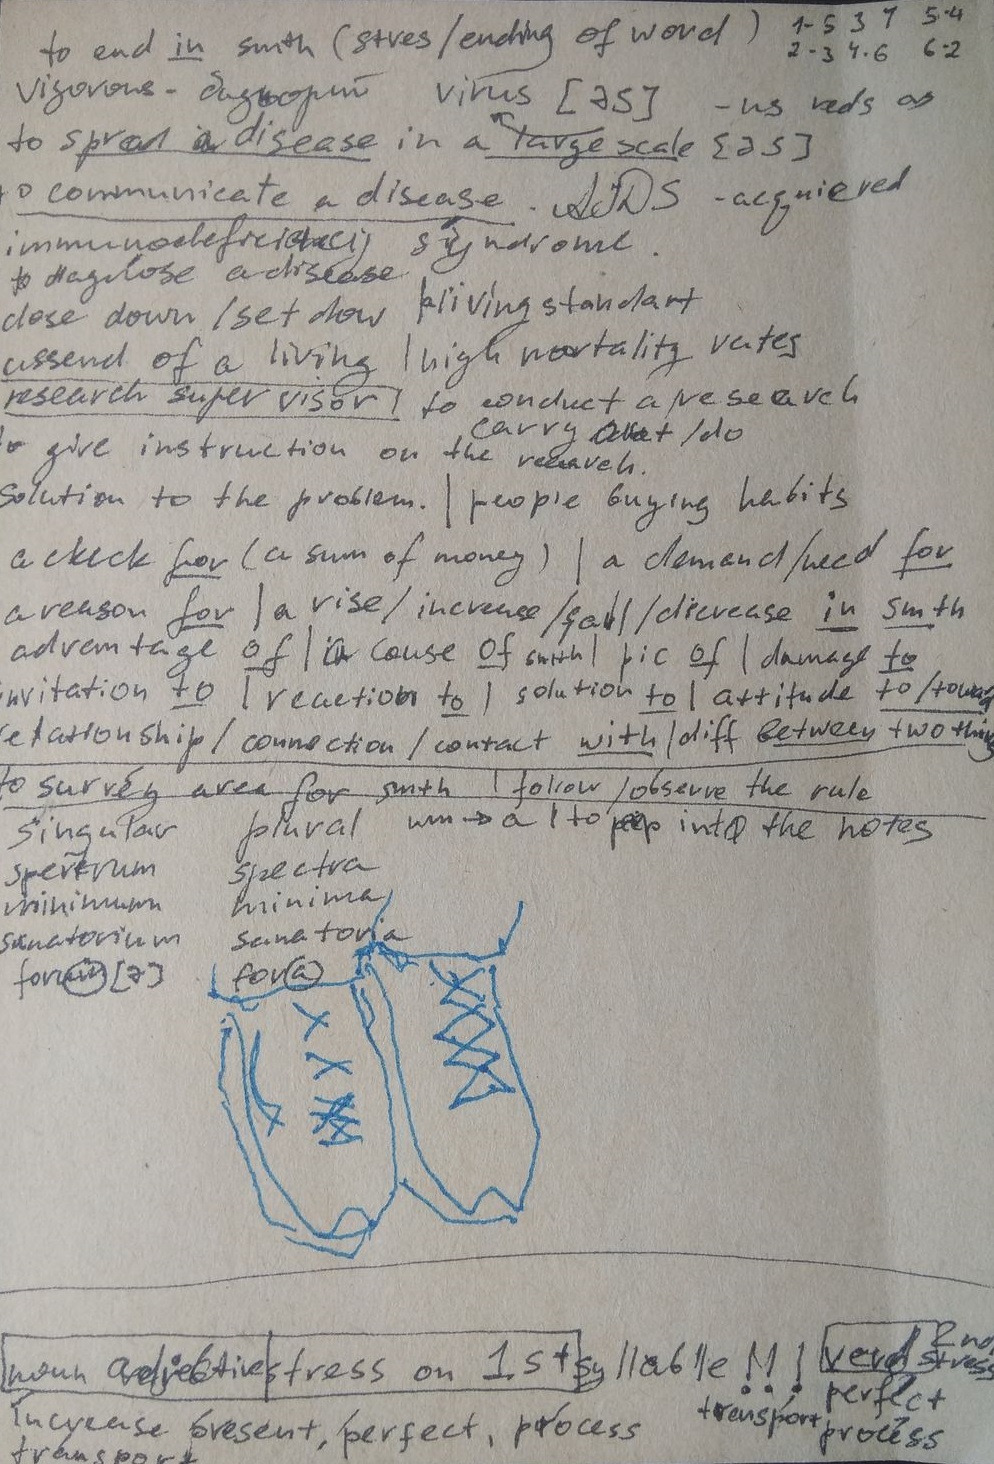 to end in smth (stres/ending of word) 1-5 3 7 5-4
2-3 4-6 6-2
vigorous - virus [əs] - us reds as
to spread a disease in a large scale [əs]
to communicate a disease. AIDS - acquiered
immunodeficiency syndrome.
to diaglose a disease
close down / set dow | living standart
assend of a living | high mortality rates
research supervisor | to conduct a/research
carry out /do
to give instruction on the research.
Solution to the problem. | people buying habits
a check for (a sum of money) | a demand/need for
a reason for | a rise/ increase /fall /dicrease in smth
adventage of | a couse of smth | pic of | damage to
invitation to | reaction to | solution to | attitude to /toward
relationship / connection / contact with | diff between two things
to survey area for smth | follow /observe the rule
singular plural um → a | to peep into the notes
spektrum spectra
minimum minima
sanatorium sanatoria
forum [ə] fora
noun adjective stress on 1st syllable !!! | verd 2nd stress
transport, perfect
increase present, perfect, process process
transport